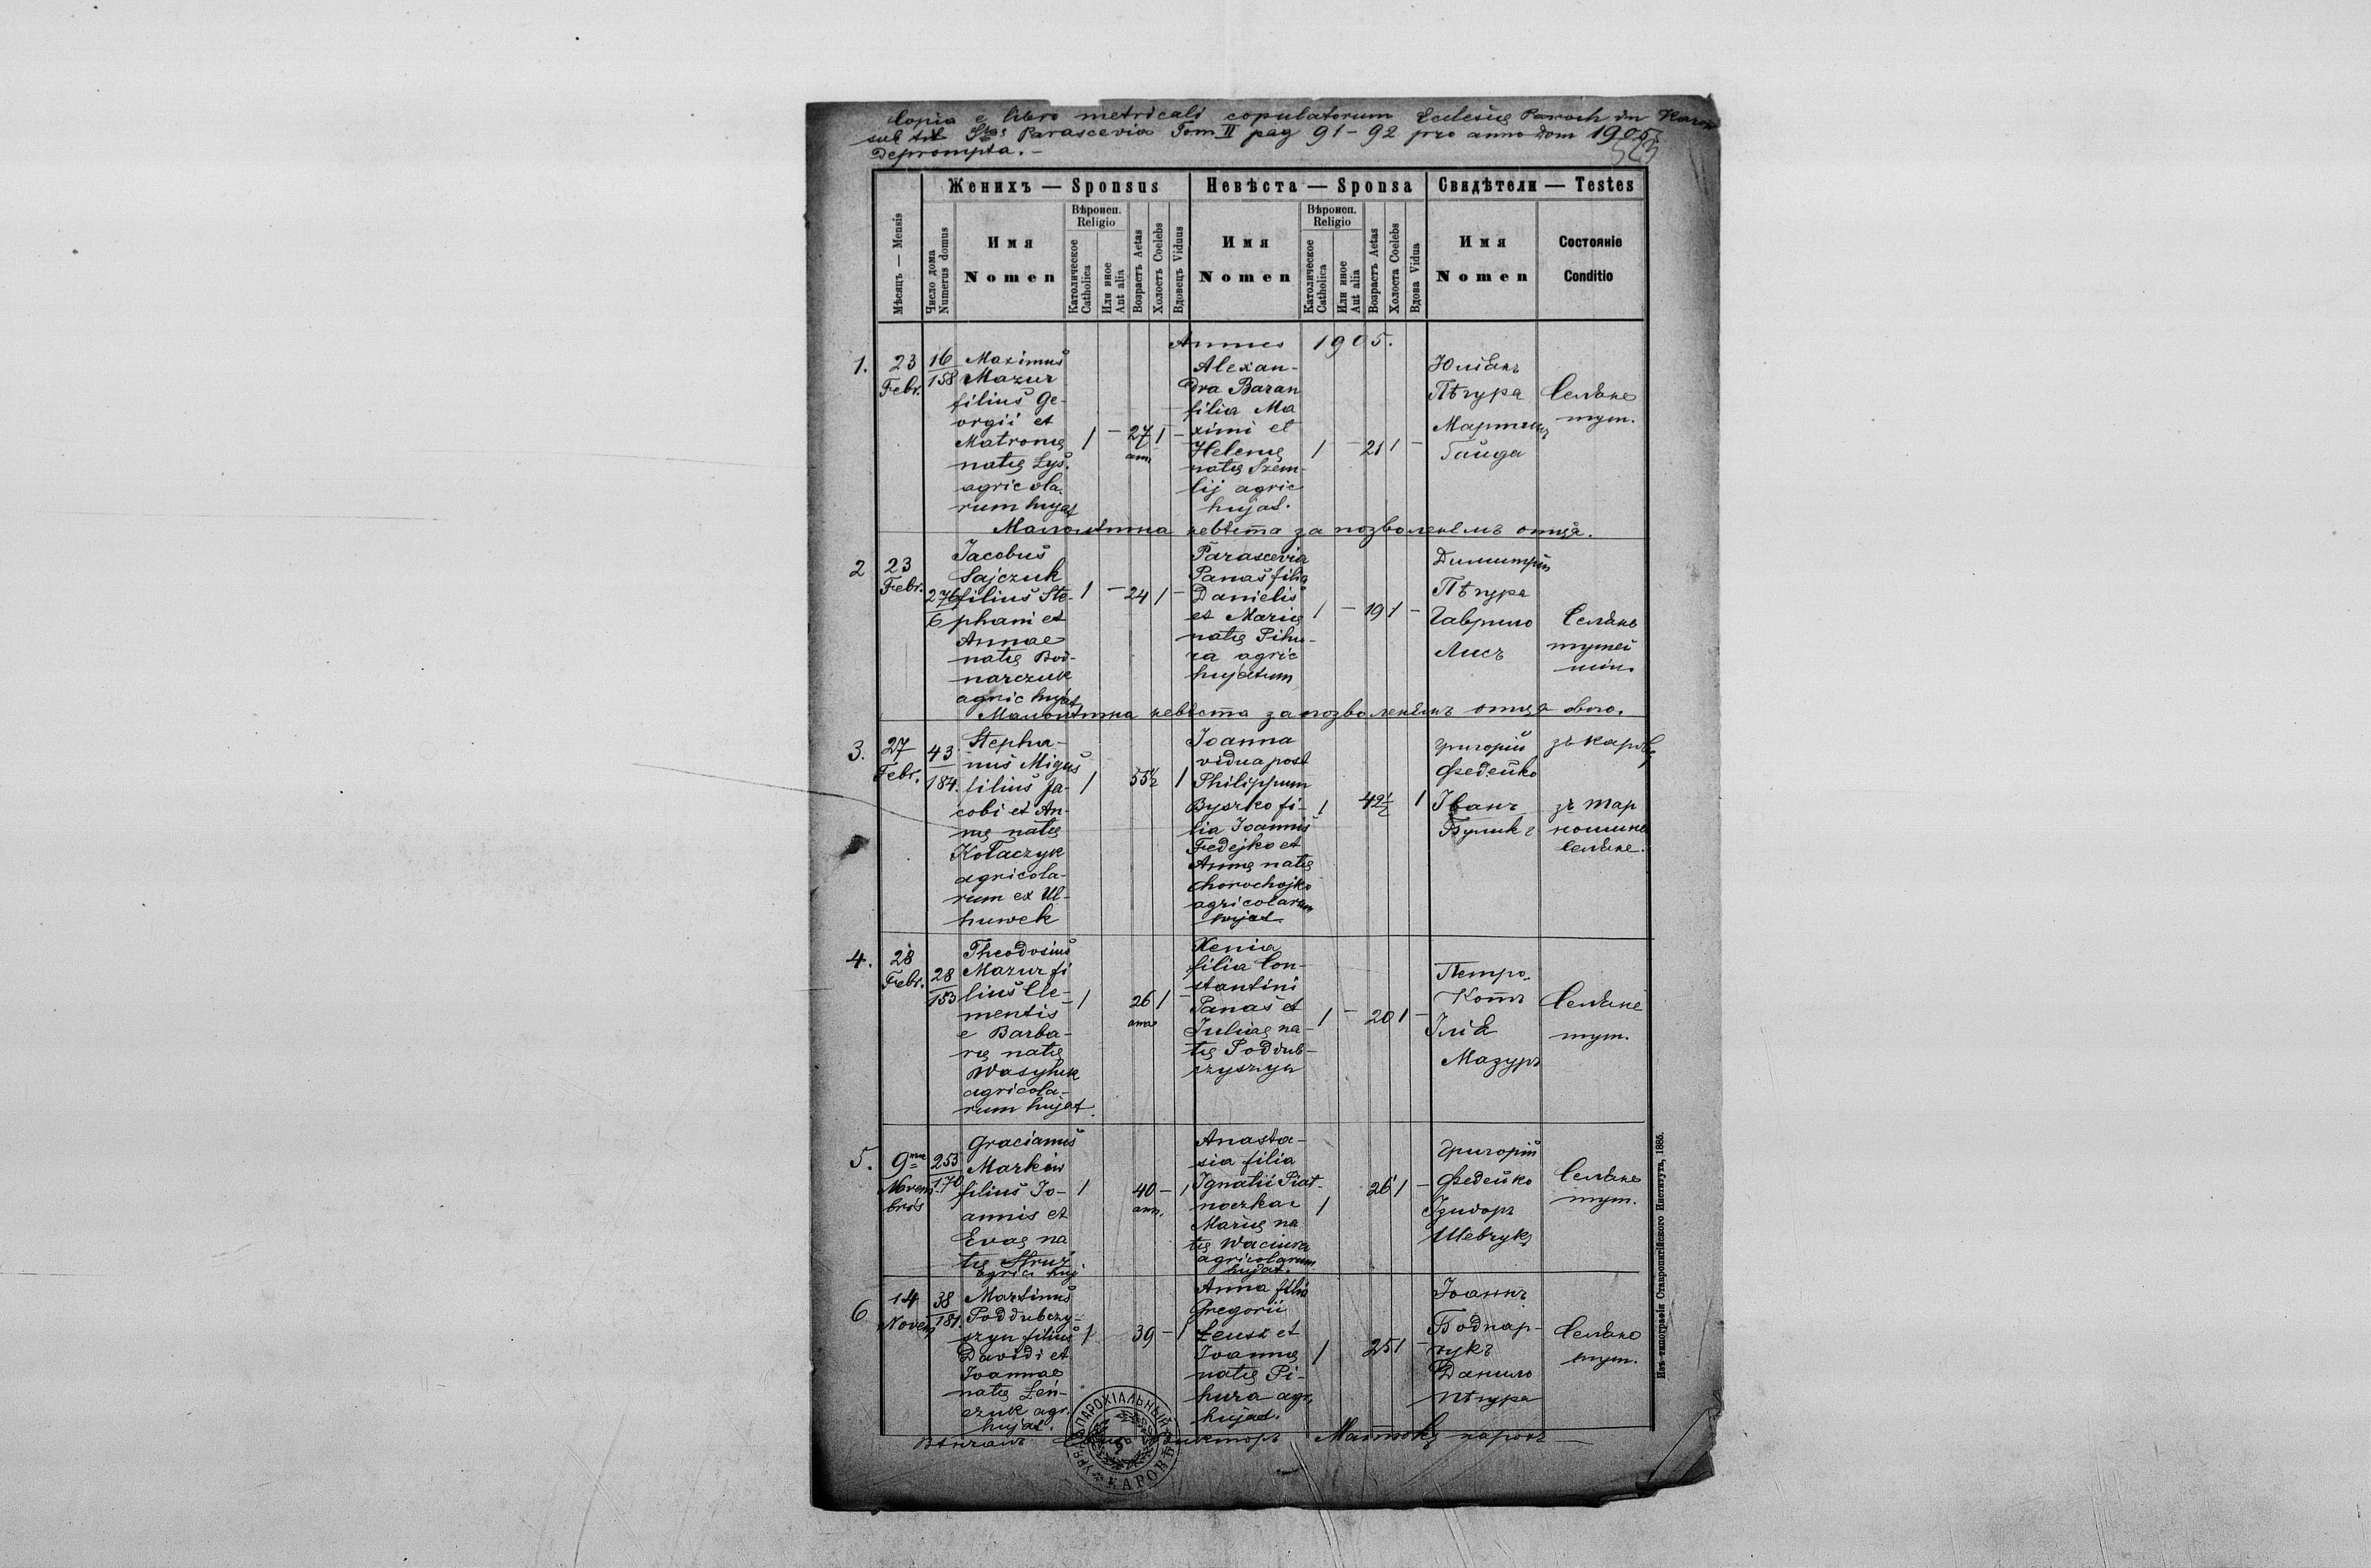 Copia e libro metricali copulatorum Ecclesiæ Paroch in Karow
sub tit Stae Parascevia Tom II pag 91-92 pro anno Dom 1905
Deprompta.-
Женихъ — Sponsus
Невѣста — Sponsa
Свидѣтели — Testes
Мѣсяцъ — Mensis
Число дома
Numerus domus
Имя
Nomen
Вѣроисп.
Religio
Католическое
Catholica
Или иное
Aut alia
Возрастъ Aetas
Холостъ Coelebs
Вдовецъ Viduus
Имя
Nomen
Вѣроисп.
Religio
Католическое
Catholica
Или иное
Aut alia
Возрастъ Aetas
Холоста Coelebs
Вдова Vidua
Имя
Nomen
Состояніе
Conditio
Annus 1905.
1.
23
Febr.
16
158
Maximus
Mazur
filius Ge-
orgii et
Matronę
natę Łyś.
agricola-
rum hujat
1 - 27 1 -
ann
Alexan-
dra Baran
filia Ma
ximi et
Helenę
natę Szem-
lij agric
hujat.
1 - 21 1 -
Юліанъ
Пѣгура
Мартинъ
Гайда
Селяне
тут.
Малолѣтна невѣста за позволенємъ отця.
2
23
Febr.
276
6
Jacobus
Sajczuk
filius Ste-
phani et
Annae
natę Bod-
narczuk
agric hujat
1 - 24 1 -
Parascevia
Panaś filia
Danielis
et Marię
natę Pihu-
ra agric
hujatum
1 - 19 1 -
Димитрій
Пѣгура
Гаврило
Лисъ
Селяне
тутей
Малолѣтна невѣста за позволенємъ отця свого.
3.
27
Febr.
43
184.
Stepha-
nus Migus
filius Ja-
cobi et An-
nę natę
Kołaczyk
agricola-
rum ex Ul-
huwek
1 55½ 1
Joanna
vidua post
Philippum
Byszko fi-
lia Joannis
Fedejko et
Annę natę
Chorochojko
agricolarum
hujat
1 42½ 1
Григорій
Федейко
Іванъ
Буликъ
зъ Каровъ
зъ Тар
ношина
Селяне.
4.
28
Febr.
28
153
Theodosius
Mazur fi
lius Cle-
mentis
e Barba-
rę natę
Wasyluk
agricola-
rum hujat.
1 26 1 -
anno
Xenia
filia Con-
stantini
Panaś et
Julię na-
tę Poddub-
czyszyn
1 - 20 1 -
Петро
Котъ
Ілія
Мазуръ
Селяне
тут.
5.
9
Novem
bris
253
170
Gracianus
Markiw
filius Jo-
annis et
Evaę na
tę Struż
agric huj
1 40 - 1
ann.
Anasta-
sia filia
Ignatii Piat-
noczka e
Marię na
tę Waciura
agricolarum
hujat.
1 26 1 -
Григорій
Федейко
Ізидоръ
Шевчукъ
Селяне
тут.
6
14
Novem
38
181.
Martinus
Poddubczy-
szyn filius
Davidi et
Joannae
natę Łeń-
czuk agr.
hujat.
1 39 - 1
Anna filia
Gregorii
Łeuś et
Joannę
natę Pi-
hura agr.
hujat.
1 25 1 -
Іоаннъ
Боднар-
чукъ
Данило
Пѣгура
Селяне
тут.
Вѣнчалъ
парохъ
КАРОВѢ
Изъ типографіи Ставропигійского Института, 1885.